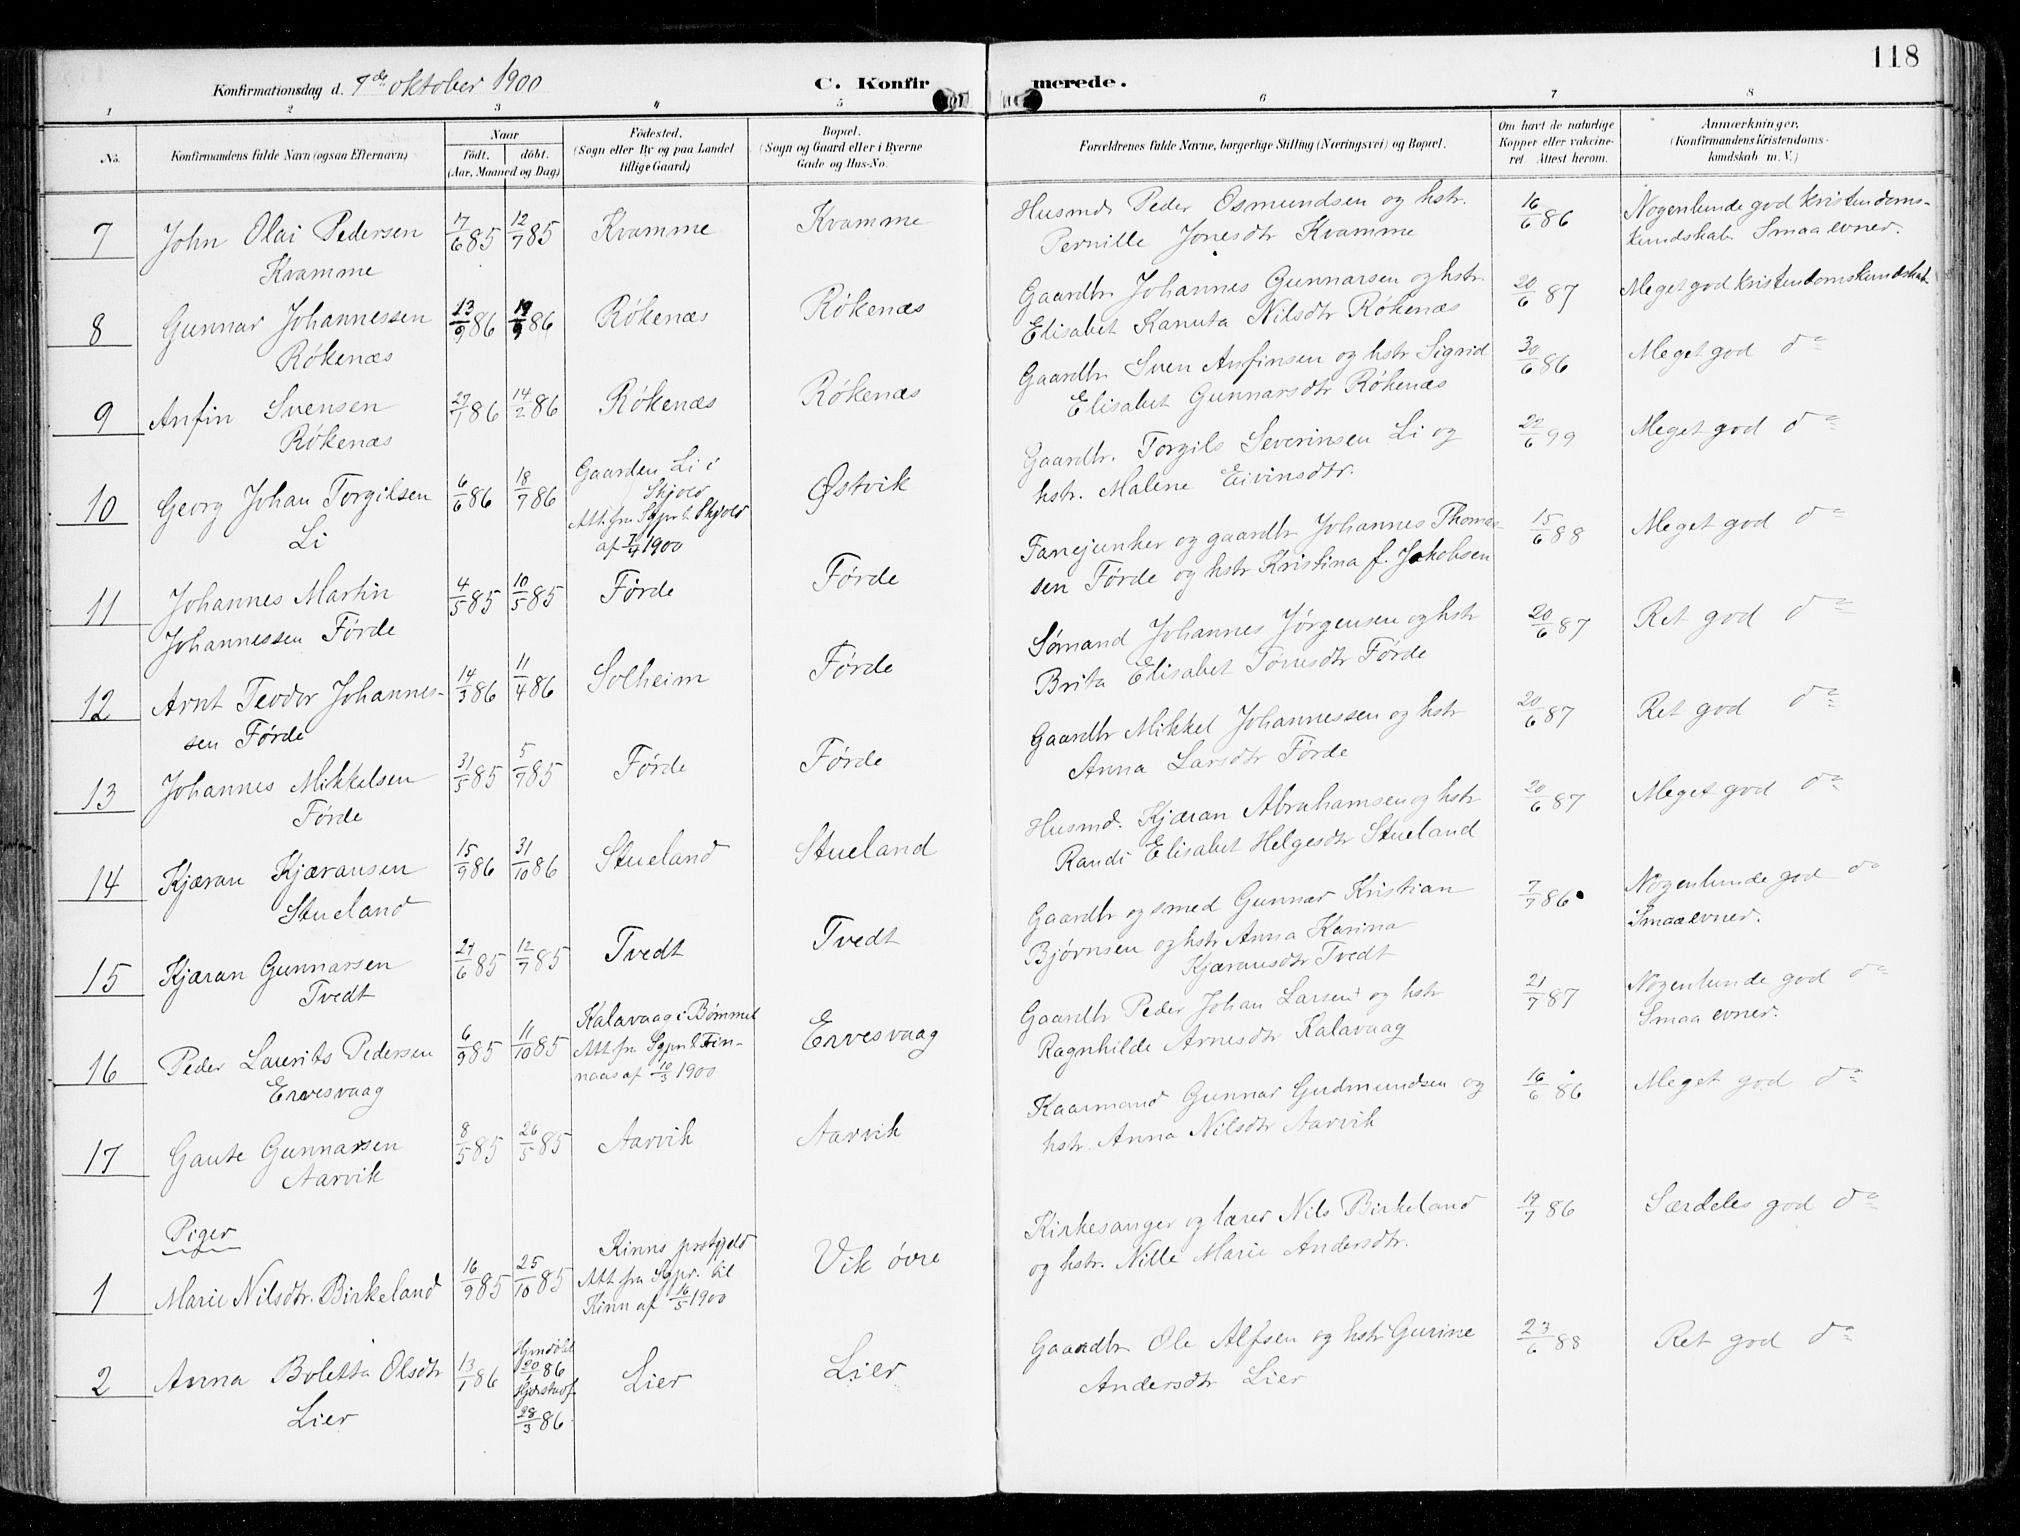 118
Konfirmationsdag d. 7de oktober 1900
C. Konfirmerede.
1 2 3 4 5 6 7 8
No. Konfirmandens fulde Navn (ogsaa Efternavn) Naar født. døbt. (Aar, Maaned og Dag) Fødested. (Sogn eller By og paa Landet tillige Gaard) Bopæl. (Sogn og Gaard eller i Byerne Gade og Hus-No. Forældrenes fulde Navne, borgerlige Stilling (Næringsvei) og Bopæl. Om havt de naturlige Kopper eller vakcineret. Attest herom. Anmærkninger. (Konfirmandens Kristendomskundskab m. V.)
7 John Olai Pedersen Kvamme 7/6 85 12/7 85 Kvamme Kvamme Husmd. Peder Osmundsen og hstr. Pernille Jonesdtr Kvamme 16/6 86 Nogenlunde god kristendomskundskab. Smaa evner.
8 Gunnar Johannessen Røkenæs 13/9 86 19/9 86 Røkenæs Røkenæs Gaardbr. Johannes Gunnarsen og hstr. Elisabet Kanuta Nilsdtr Røkenæs 20/6 87 Meget god kristendomskundskab
9 Anfin Svensen Røkenæs 86 14/2 86 Røkenæs Røkenæs Gaardbr. Sven Anfinsen og hstr Sigrid Elisabet Gunnarsdtr Røkenæs 86 Meget god do
10 Georg Johan Torgilsen Li 6/6 86 18/7 86 Gaarden Li i Skjold Att. fra Sgpr. t. Skjold af 7/4 1900 Østvik Gaardbr. Torgils Severinsen Li og hstr. Malene Eivinsdtr. 22/6 99 Meget god do
11 Johannes Martin Johannessen Førde 4/5 85 10/5 85 Førde Førde Fanejunker og gaardbr Johannes Thomassen Førde og hstr Kristina f. Jakobsen 15/6 88 Meget god do
12 Arnt Teodor Johannessen Førde 14/3 86 11/4 86 Solheim Førde Sømand Johannes Jørgensen og hstr Brita Elisabet Tønesdtr Førde 20/6 87 Ret god do
13 Johannes Mikkelsen Førde 31/5 85 5/7 85 Førde Førde Gaardbr Mikkel Johannessen og hstr Anna Larsdtr Førde 20/6 87 Ret god do
14 Kjæran Kjæransen Stueland 15/9 86 31/10 86 Stueland Stueland Husmd. Kjæran Abrahamsen og hstr Randi Elisabet Helgesdtr Stueland 20/6 87 Meget god do
15 Kjæran Gunnarsen Tvedt 6 85 12/7 85 Tvedt Tvedt Gaardbr og smed Gunnar Kristian Bjørnsen og hstr Anna Karina Kjæransdtr Tvedt 7/7 86 Nogenlunde god do Smaa evner.
16 Peder Laurits Pedersen Ervesvaag 6/9 85 11/10 85 Kalavaag i Bømmel Att fra Sgpr. t. Finnaas af 10/3 1900 Ervesvaag Gaardbr Peder Johan Larsen og hstr Ragnhilde Arnesdtr Kalavaag 21/7 87 Nogenlunde god do Smaa evner.
17 Gaute Gunnarsen Aarvik 8/5 85 26/5 85 Aarvik Aarvik Kaarmand Gunnar Gudmundsen og hstr. Anna Nilsdtr Aarvik 16/6 86 Meget god do
Piger
1 Marie Nilsdtr. Birkeland 16/9 85 25/10 85 Kinns prstgjeld Att fra Sgpr. til Kinn af 16/5 1900 Vik øvre Kirkesanger og lærer Nils Birkeland og hstr. Nille Marie Andersdtr. 19/7 86 Særdeles god do
2 Anna Boletta Olsdtr Lier 13/1 86 Hjmdøbt 20/1 86 28/3 86 Lier Lier Gaardbr Ole Alfsen og hstr Gurine Andersdtr Lier 23/6 88 Ret god do